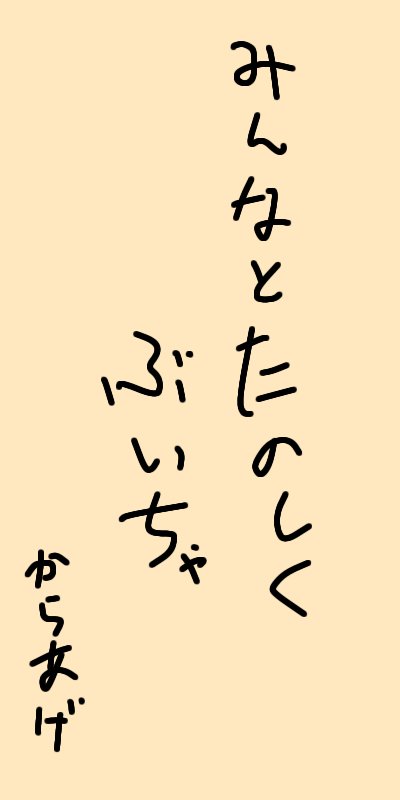 みんなとたのしく
ぶいちゃ
からあげ